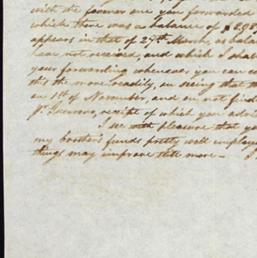 with the former one you forwarded
which there was a balance of $298
appears in that of 27th March, a bala
was not received, and which I shal
your forwarding whenever you can co
this the more readily, on seeing that th
on 1st of November, and on not find
receipt of which you advis
I see with pleasure that yo
my brother's funds pretty well employe
things may improve still more — I